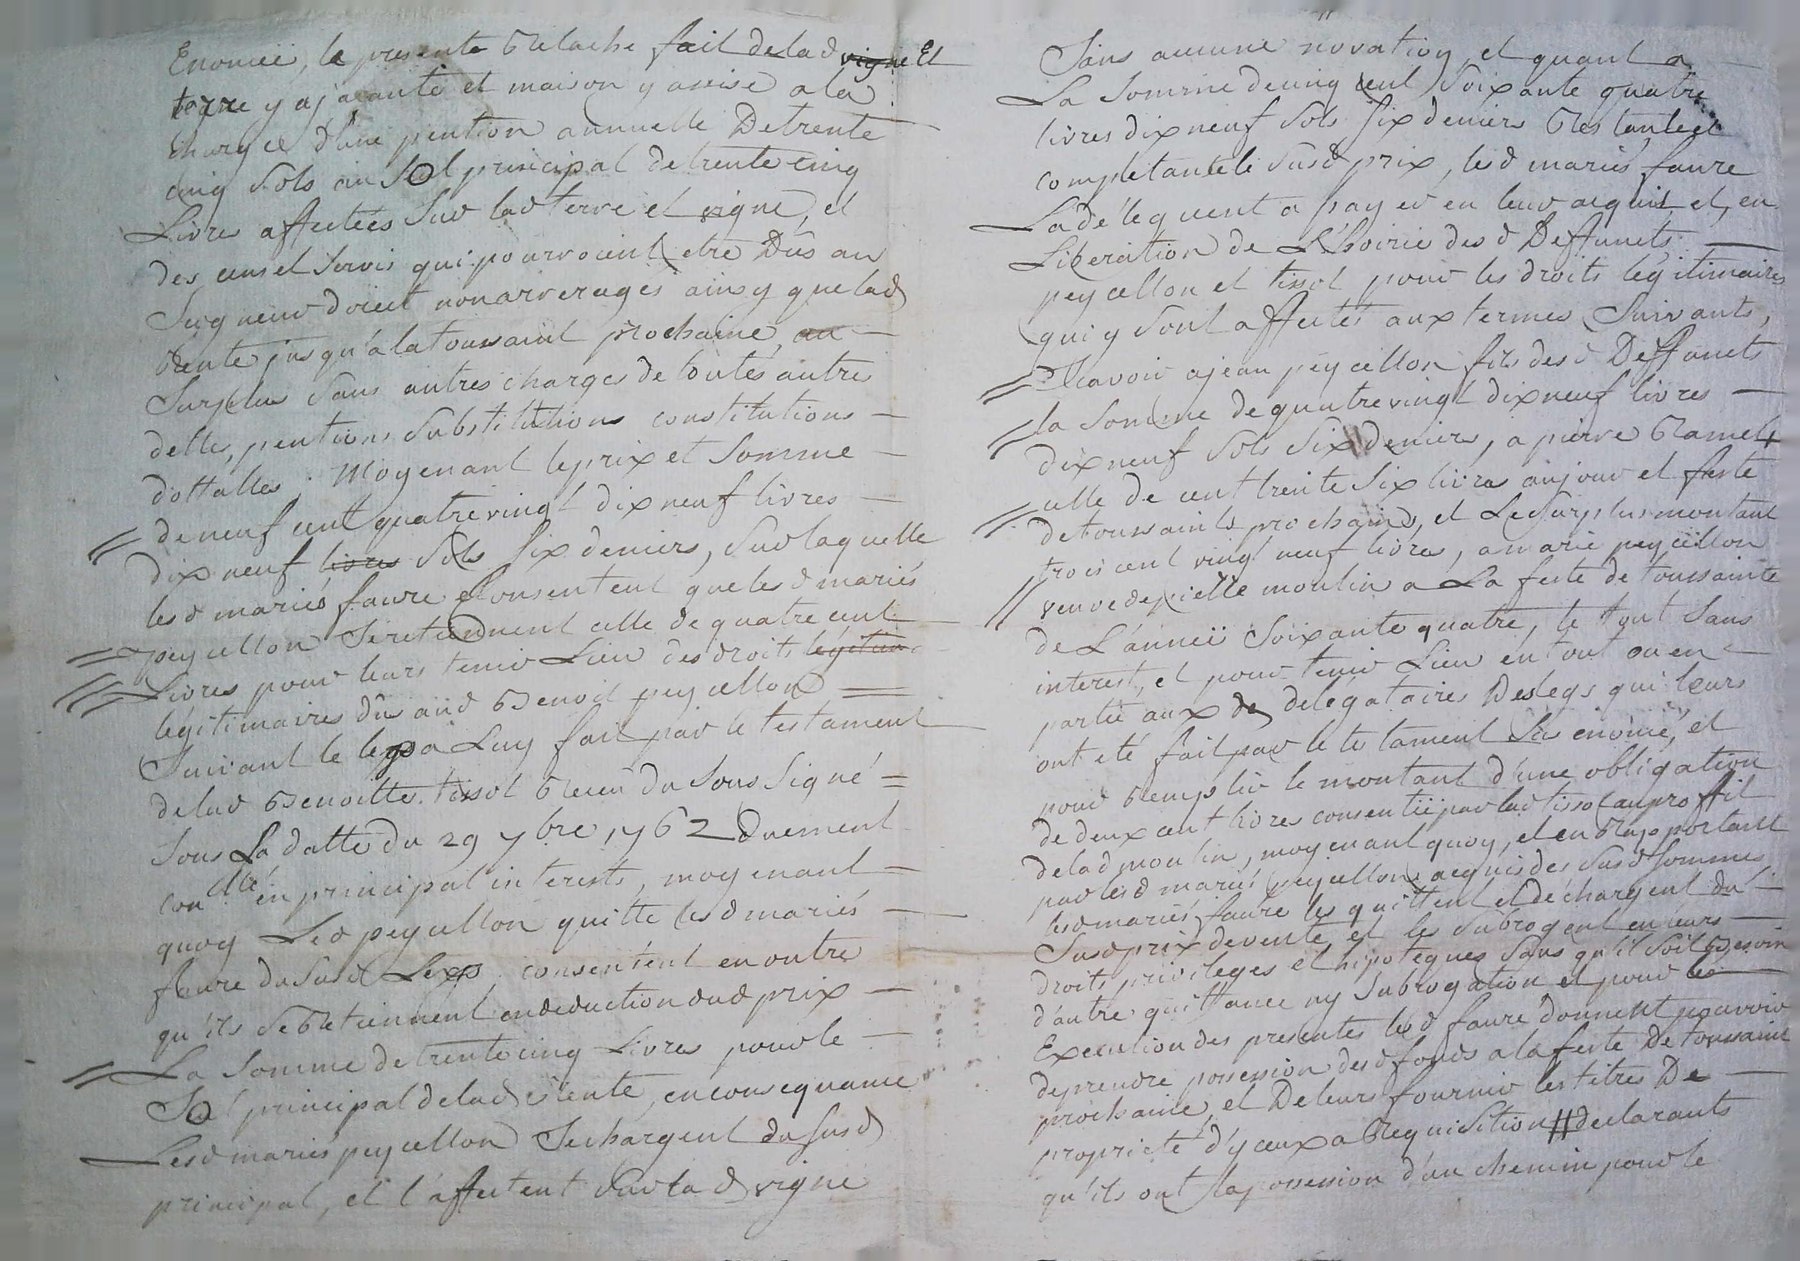 Enoncée, le presente Relache fait de lad vigne Et
terre y ajacante et maison y assise a la
charge d'une pention annuelle De trente
cinq sols au sol principal de trente cinq
Livres affectées sur lad terre et vigne, et
des cens et servis qui pourroient etre Dûs au
Seigneur direct non arrerages ainsy que lad
Rente jusqu'à la toussaint prochaine, au
Surplus sans autres charges de toutes autres
dette, pentions substitutions constitutions
dottalles. Moyenant le prix et somme
de neuf cent quatre vingt dix neuf livres
dix neuf livres sols six deniers, sur laquelle
lesd mariés faure Consentent que les d mariés
peycellon se retiennent celle de quatre cent
Livres pour leurs tenir Lieu des droits légitim
légitimaires dûs aud Benoit peycellon
Suivant le legs a Luy fait par le testament
de lad Benoitte tissot Receu du sous signé
sous La datte du 29 7bre 1762 duement
con.llé en principal interests, moyenant
quoy Led peycellon quitte les d mariés
faure du susd Legs, consentent en outre
qu'ils se Retiennent en deduction dud prix
La somme de trente cinq Livres pour le
Sol principal de lad Rente, en consequance
Lesd mariés peycellon se chargent du susd
principal, et l'affectent sur la d vigne
Sans aucune novation, et quant a
La somme de cinq cent soixante quatre
livres dix neuf sols six deniers Restante et
completante le susd prix, les d mariés faure
La délequent a payer en leur acquit et, en
Liberation de L'hoirie des d Deffunets
peycellon et tissot pour les droits légitimaires
qui y sont affectés aux termes suivants,
Scavoir a jean peycellon fils des d Deffunets
la somme de quatre vingt dix neuf livres
dix neuf sols six deniers, a pierre Ramel
celle de cent trente six livres aujour et feste
de toussaints prochains, et Le surplus montant
trois cent vingt neuf livres, a marie peycellon
veuve de moulin a La feste de toussaints
de L'anneïe soixante quatre, le tout sans
interest, et pour tenir Lieu en tout ou en
partie aux d delegataires Des legs qui leurs
ont eté fait par le testament sus enoncé, et
pour Remplir le montant d'une obligation
de deux cent livres consentïe par lad tissot au proffit
de la d moulin, moyenant quoy, et en Raportant
par les d mariés peycellon acquis des susd sommes
les d mariés faure les quittent et déchargent du
susd prix de vente, et les subrogent en leurs
droits privileges et hipoteques sans qu'il soit Besoin
d'autre quittance ny subrogation et pour
Execution des presentes les d faure donnent pouvoir
de prendre possession des d fonds a la feste De toussaint
prochaine, et De leurs fournir les titres De
propriété d'yceux a Requisition # declarants
qu'ils ont la possession d'un chemin pour le